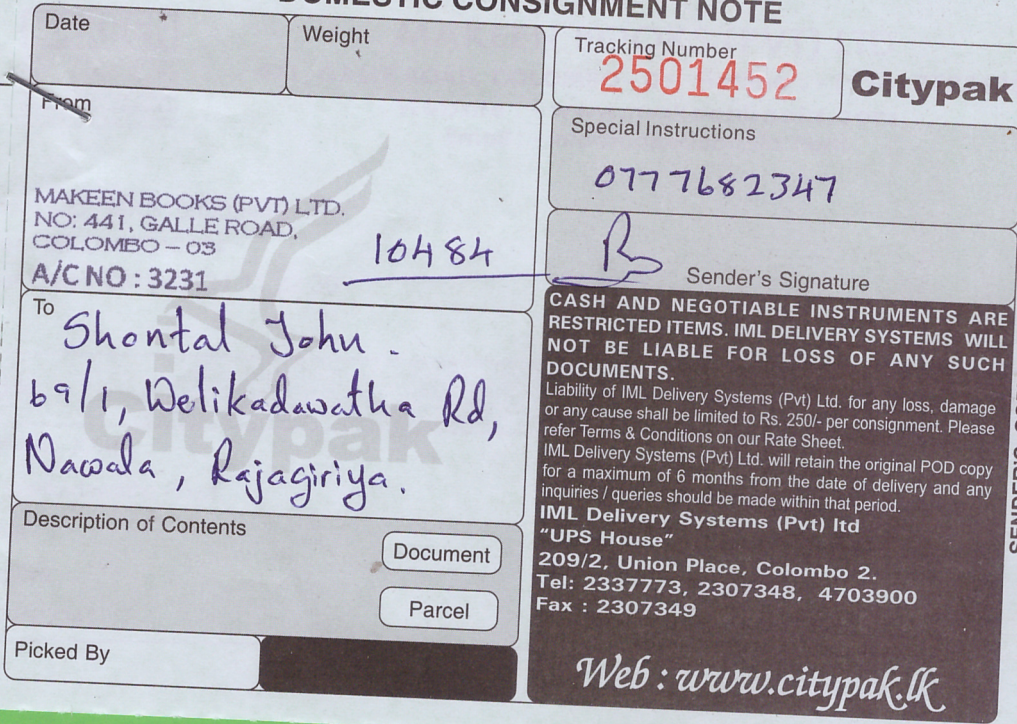 DOMESTIC CONSIGNMENT NOTE
Date
Weight
Tracking Number
2501452
Citypak
From
MAKEEN BOOKS (PVT) LTD.
NO: 441, GALLE ROAD,
COLOMBO – 03
A/C NO : 3231
10484
Special Instructions
0777682347
Sender's Signature
To
Shontal John.
69/1, Welikadawatha Rd,
Nawala, Rajagiriya.
Citypak
Description of Contents
Document
Parcel
Picked By
CASH AND NEGOTIABLE INSTRUMENTS ARE
RESTRICTED ITEMS. IML DELIVERY SYSTEMS WILL
NOT BE LIABLE FOR LOSS OF ANY SUCH
DOCUMENTS.
Liability of IML Delivery Systems (Pvt) Ltd. for any loss, damage
or any cause shall be limited to Rs. 250/- per consignment. Please
refer Terms & Conditions on our Rate Sheet.
IML Delivery Systems (Pvt) Ltd. will retain the original POD copy
for a maximum of 6 months from the date of delivery and any
inquiries / queries should be made within that period.
IML Delivery Systems (Pvt) ltd
"UPS House"
209/2, Union Place, Colombo 2.
Tel: 2337773, 2307348, 4703900
Fax : 2307349
Web : www.citypak.lk